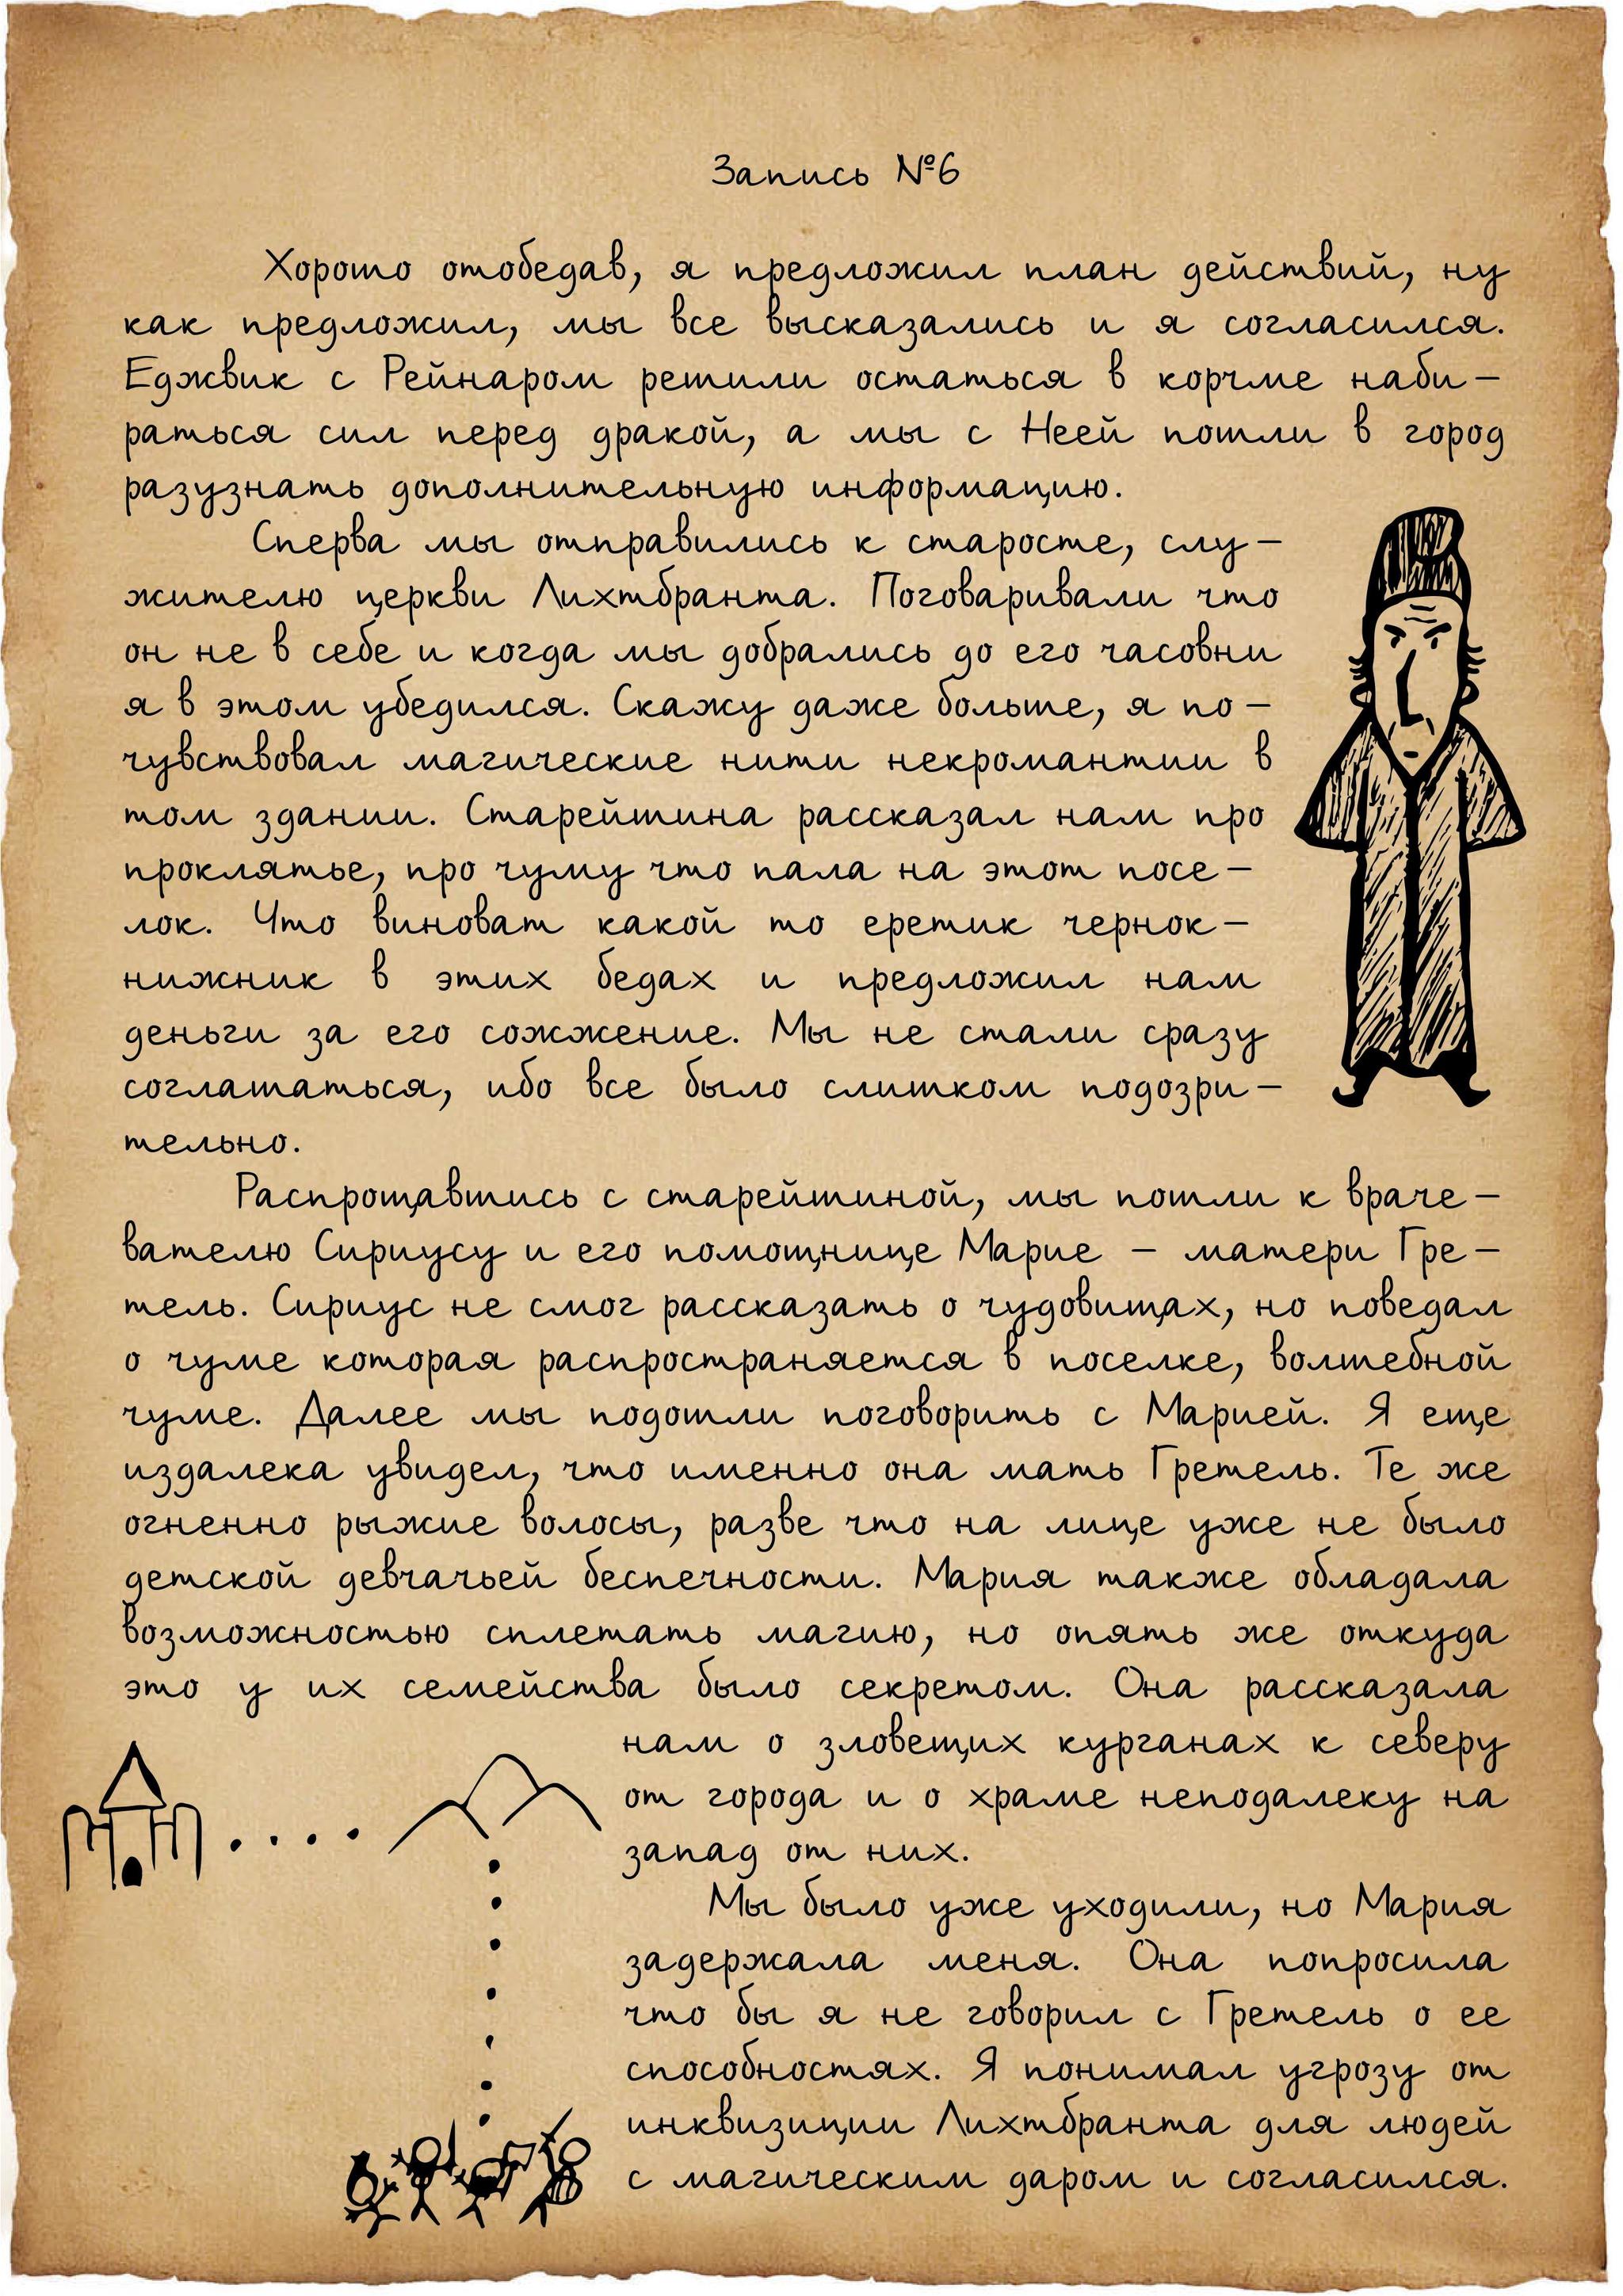 Запись №6
Хорошо отобедав, я предложил план действий, ну
как предложил, мы все высказались и я согласился.
Еджвик с Рейнаром решили остаться в корчме наби-
раться сил перед дракой, а мы с Неей пошли в город
разузнать дополнительную информацию.
Сперва мы отправились к старосте, слу-
жителю церкви Лихтбранта. Поговаривали что
он не в себе и когда мы добрались до его часовни
я в этом убедился. Скажу даже больше, я по-
чувствовал магические нити некромантии в
том здании. Старейшина рассказал нам про
проклятье, про чуму что пала на этот посе-
лок. Что виноват какой то еретик чернок-
нижник в этих бедах и предложил нам
деньги за его сожжение. Мы не стали сразу
соглашаться, ибо все было слишком подозри-
тельно.
Распрощавшись с старейшиной, мы пошли к враче-
вателю Сириусу и его помощнице Марие - матери Гре-
тель. Сириус не смог рассказать о чудовищах, но поведал
о чуме которая распространяется в поселке, волшебной
чуме. Далее мы подошли поговорить с Марией. Я еще
издалека увидел, что именно она мать Гретель. Те же
огненно рыжие волосы, разве что на лице уже не было
детской девчачьей беспечности. Мария также обладала
возможностью сплетать магию, но опять же откуда
это у их семейства было секретом. Она рассказала
нам о зловещих курганах к северу
от города и о храме неподалеку на
запад от них.
Мы было уже уходили, но Мария
задержала меня. Она попросила
что бы я не говорил с Гретель о ее
способностях. Я понимал угрозу от
инквизиции Лихтбранта для людей
с магическим даром и согласился.